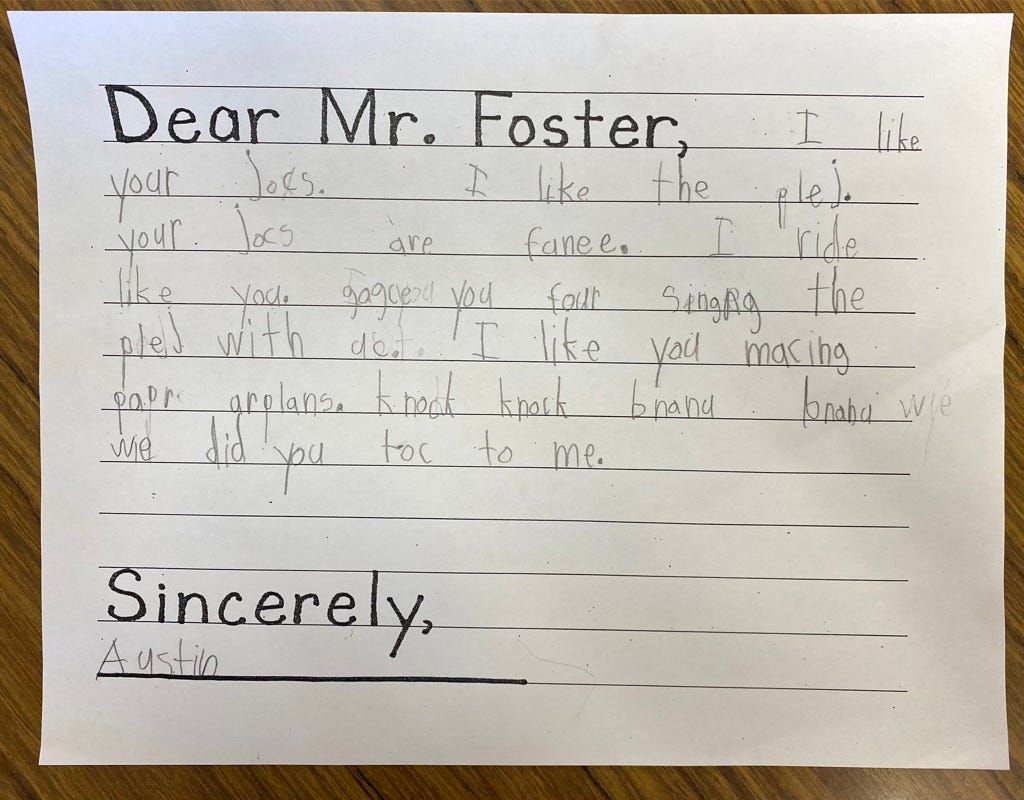 Dear Mr. Foster, I like
your Jocs. I like the plej.
your Jocs are fanee. I ride
like you. you four the
plej with I like you macing
papr arplans. knock knock bnanu bnanu wie
wie did you toc to me.
Sincerely,
Austin